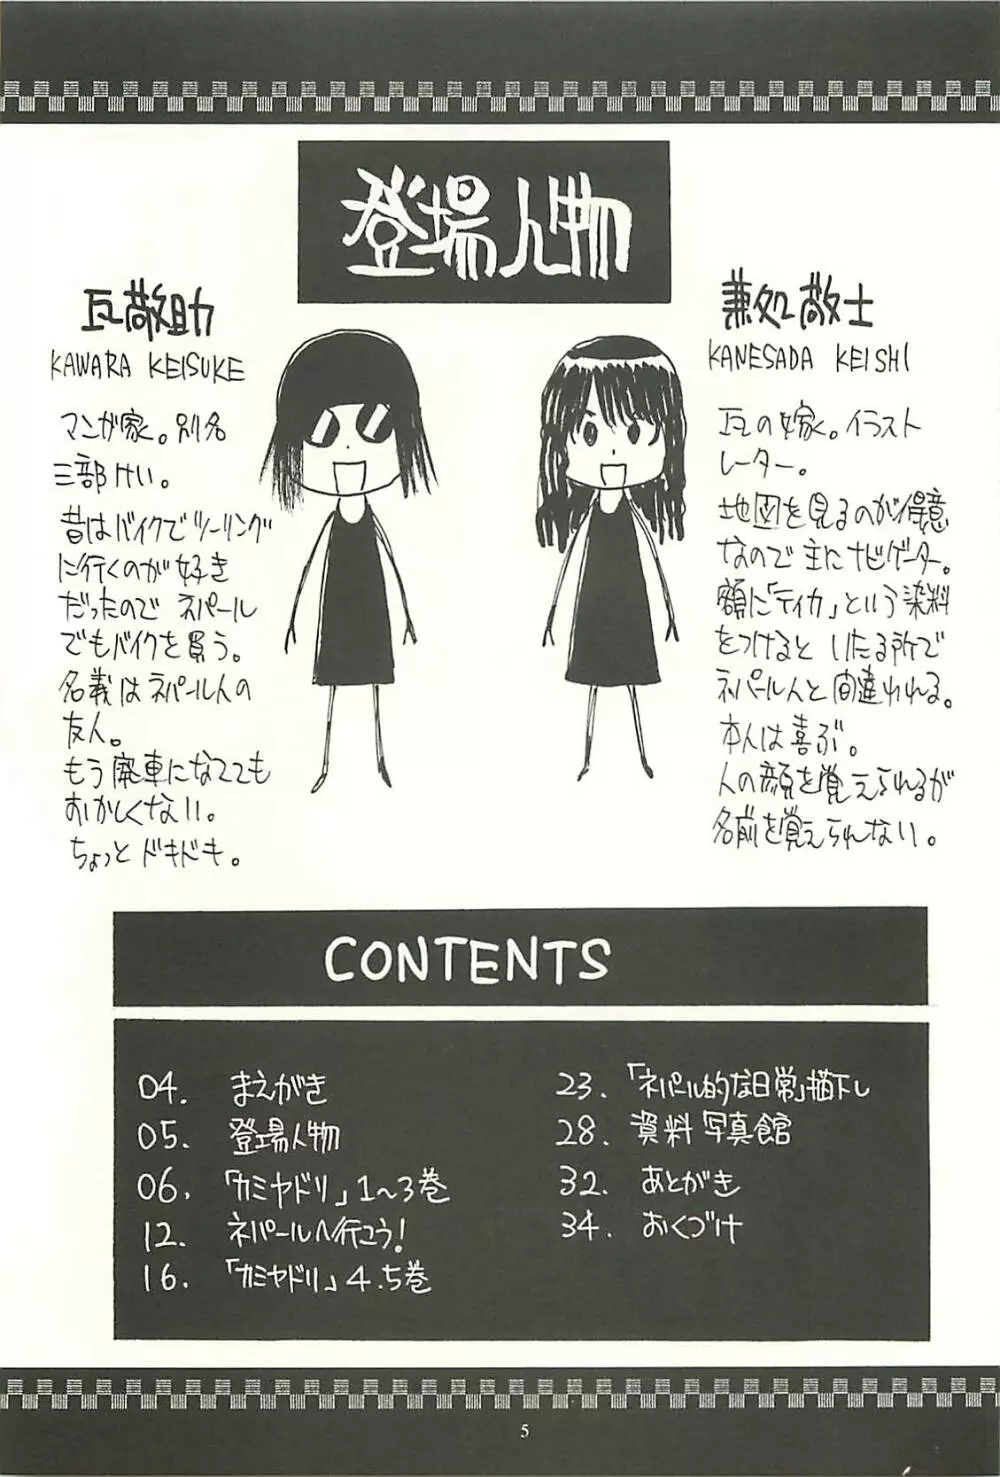 登場人物
瓦敬助
KAWARA KEISUKE
マンガ家。別名
三部けい。
昔はバイクでツーリング
に行くのが好き
だったので ネパール
でもバイクを買う。
名義はネパール人の
友人。
もう廃車になってても
おかしくない。
ちょっとドキドキ。
兼処敬士
KANESADA KEISHI
瓦の嫁。イラスト
レーター。
地図を見るのが得意
なので主にナビゲーター。
額に「ティカ」という染料
をつけると いたる所で
ネパール人と間違われる。
本人は喜ぶ。
人の顔を覚えられるが
名前を覚えられない。
CONTENTS
04. まえがき
05. 登場人物
06. 「カミヤドリ」1~3巻
12. ネパールへ行こう!
16. 「カミヤドリ」4.5巻
23. 「ネパール的な日常」描下し
28. 資料写真館
32. あとがき
34. おくづけ
5